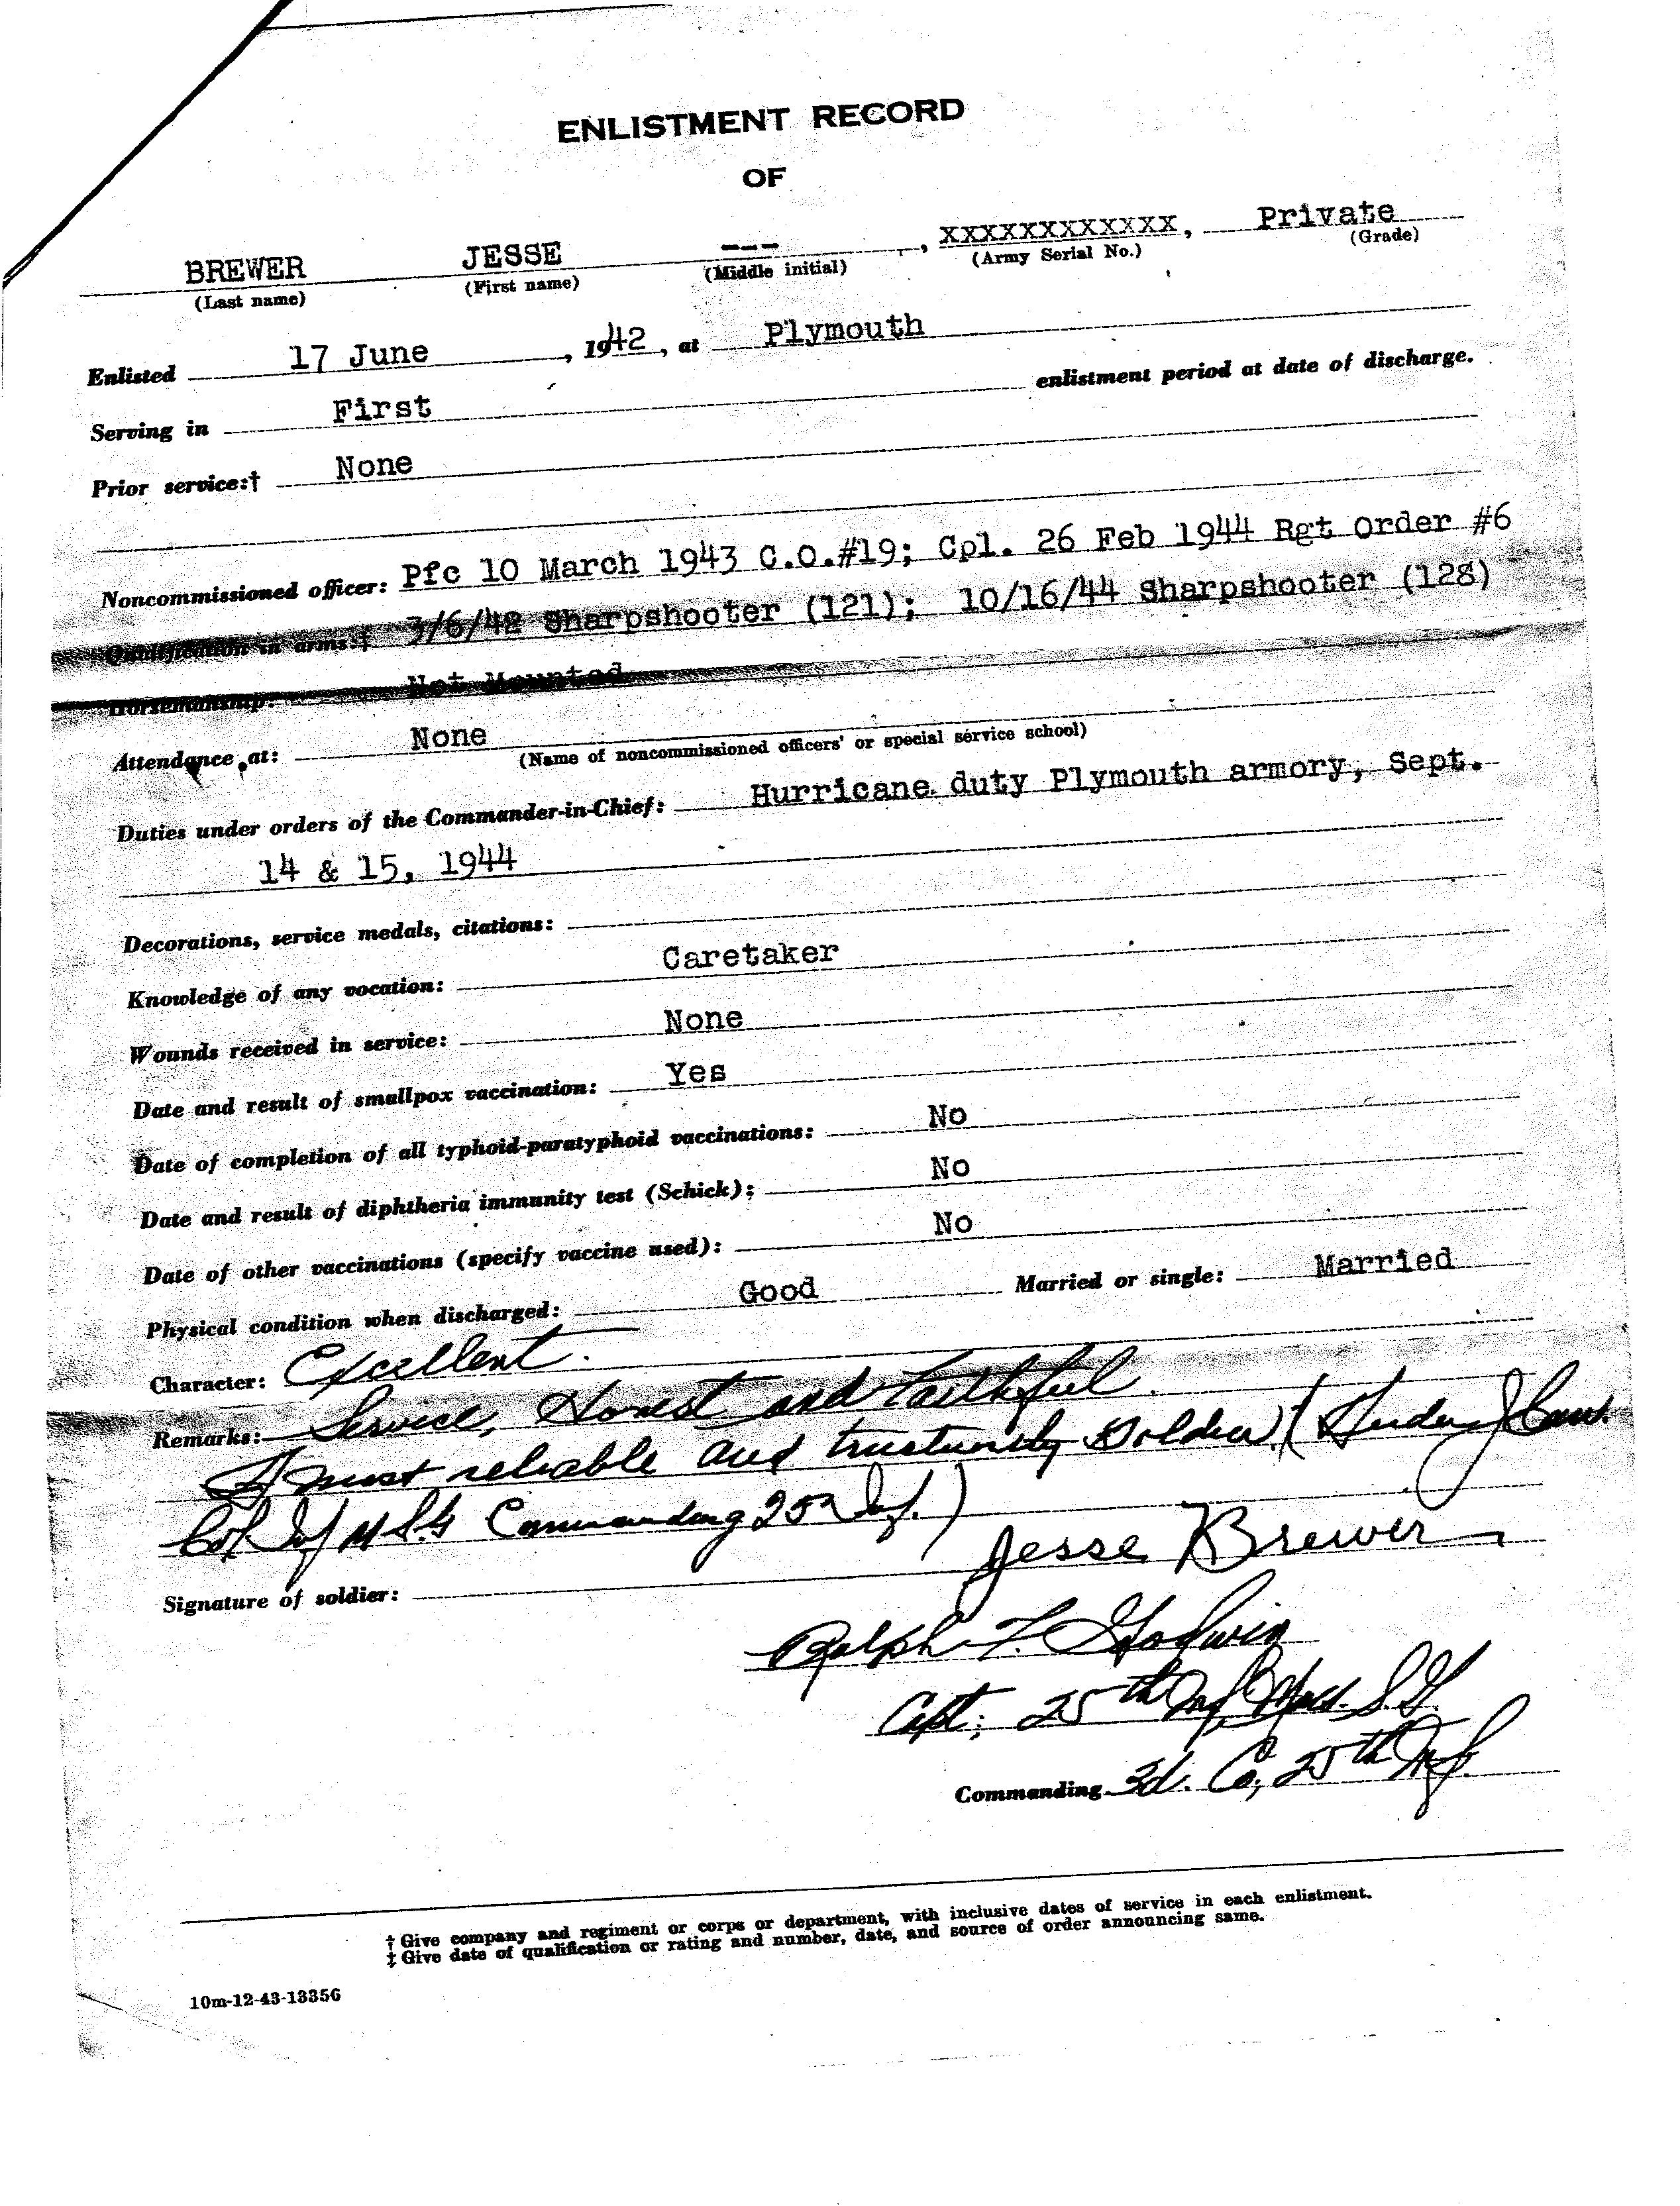 ENLISTMENT RECORD
OF
BREWER JESSE --- , XXXXXXXXXXXX, Private
(Last name) (First name) (Middle initial) (Army Serial No.) (Grade)
Enlisted 17 June , 1942 , at Plymouth
Serving in First enlistment period at date of discharge.
Prior service:† None
Noncommissioned officer: Pfc 10 March 1943 C.O.#19; Cpl. 26 Feb 1944 Rgt Order #6
Qualification in arms:‡ 3/6/42 Sharpshooter (121); 10/16/44 Sharpshooter (128)
Horsemanship: Not Mounted
Attendance at: None
(Name of noncommissioned officers' or special service school)
Duties under orders of the Commander-in-Chief: Hurricane duty Plymouth armory, Sept.
14 & 15, 1944
Decorations, service medals, citations:
Knowledge of any vocation: Caretaker
Wounds received in service: None
Date and result of smallpox vaccination: Yes
Date of completion of all typhoid-paratyphoid vaccinations: No
Date and result of diphtheria immunity test (Schick): No
Date of other vaccinations (specify vaccine used): No
Physical condition when discharged: Good Married or single: Married
Character: Excellent.
Remarks: Service, Honest and Faithful.
A most reliable and trustworthy Soldier. (
Col Inf M.S.G Commanding 25th Inf.)
Signature of soldier: Jesse Brewer
Ralph F. Godwin
Capt; 25th Inf, Mass. S.G.
Commanding 3d. Co, 25th Inf.
† Give company and regiment or corps or department, with inclusive dates of service in each enlistment.
‡ Give date of qualification or rating and number, date, and source of order announcing same.
10m-12-43-13356